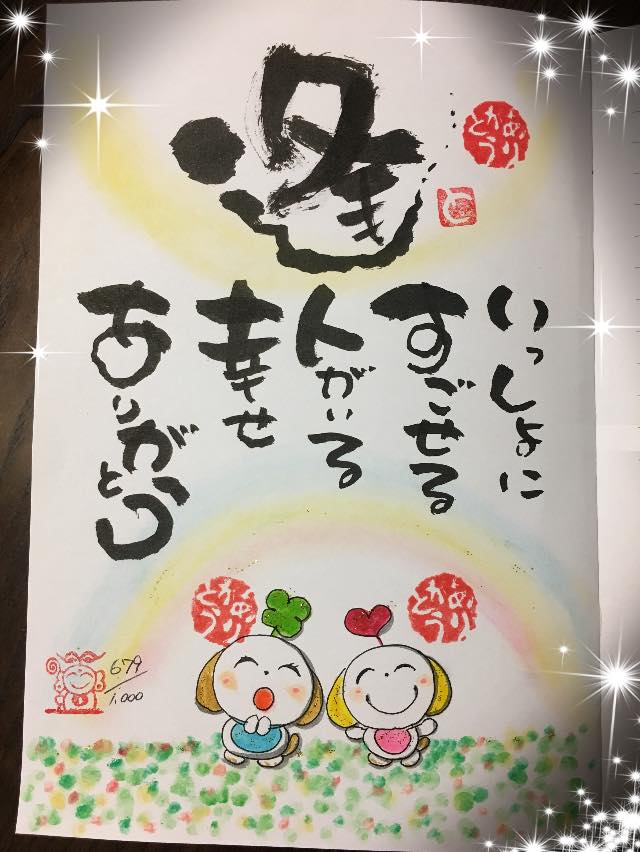 逢
いっしょに
すごせる
人がいる
幸せ
ありがとう
679
1,000